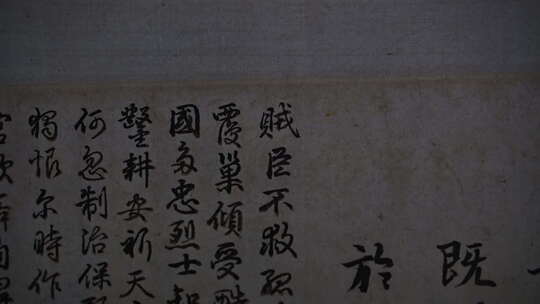 既
於
賊臣不救
覆巢傾受
國多忠烈士
鑿耕安祈天
何忍制治保
獨恨尔時作